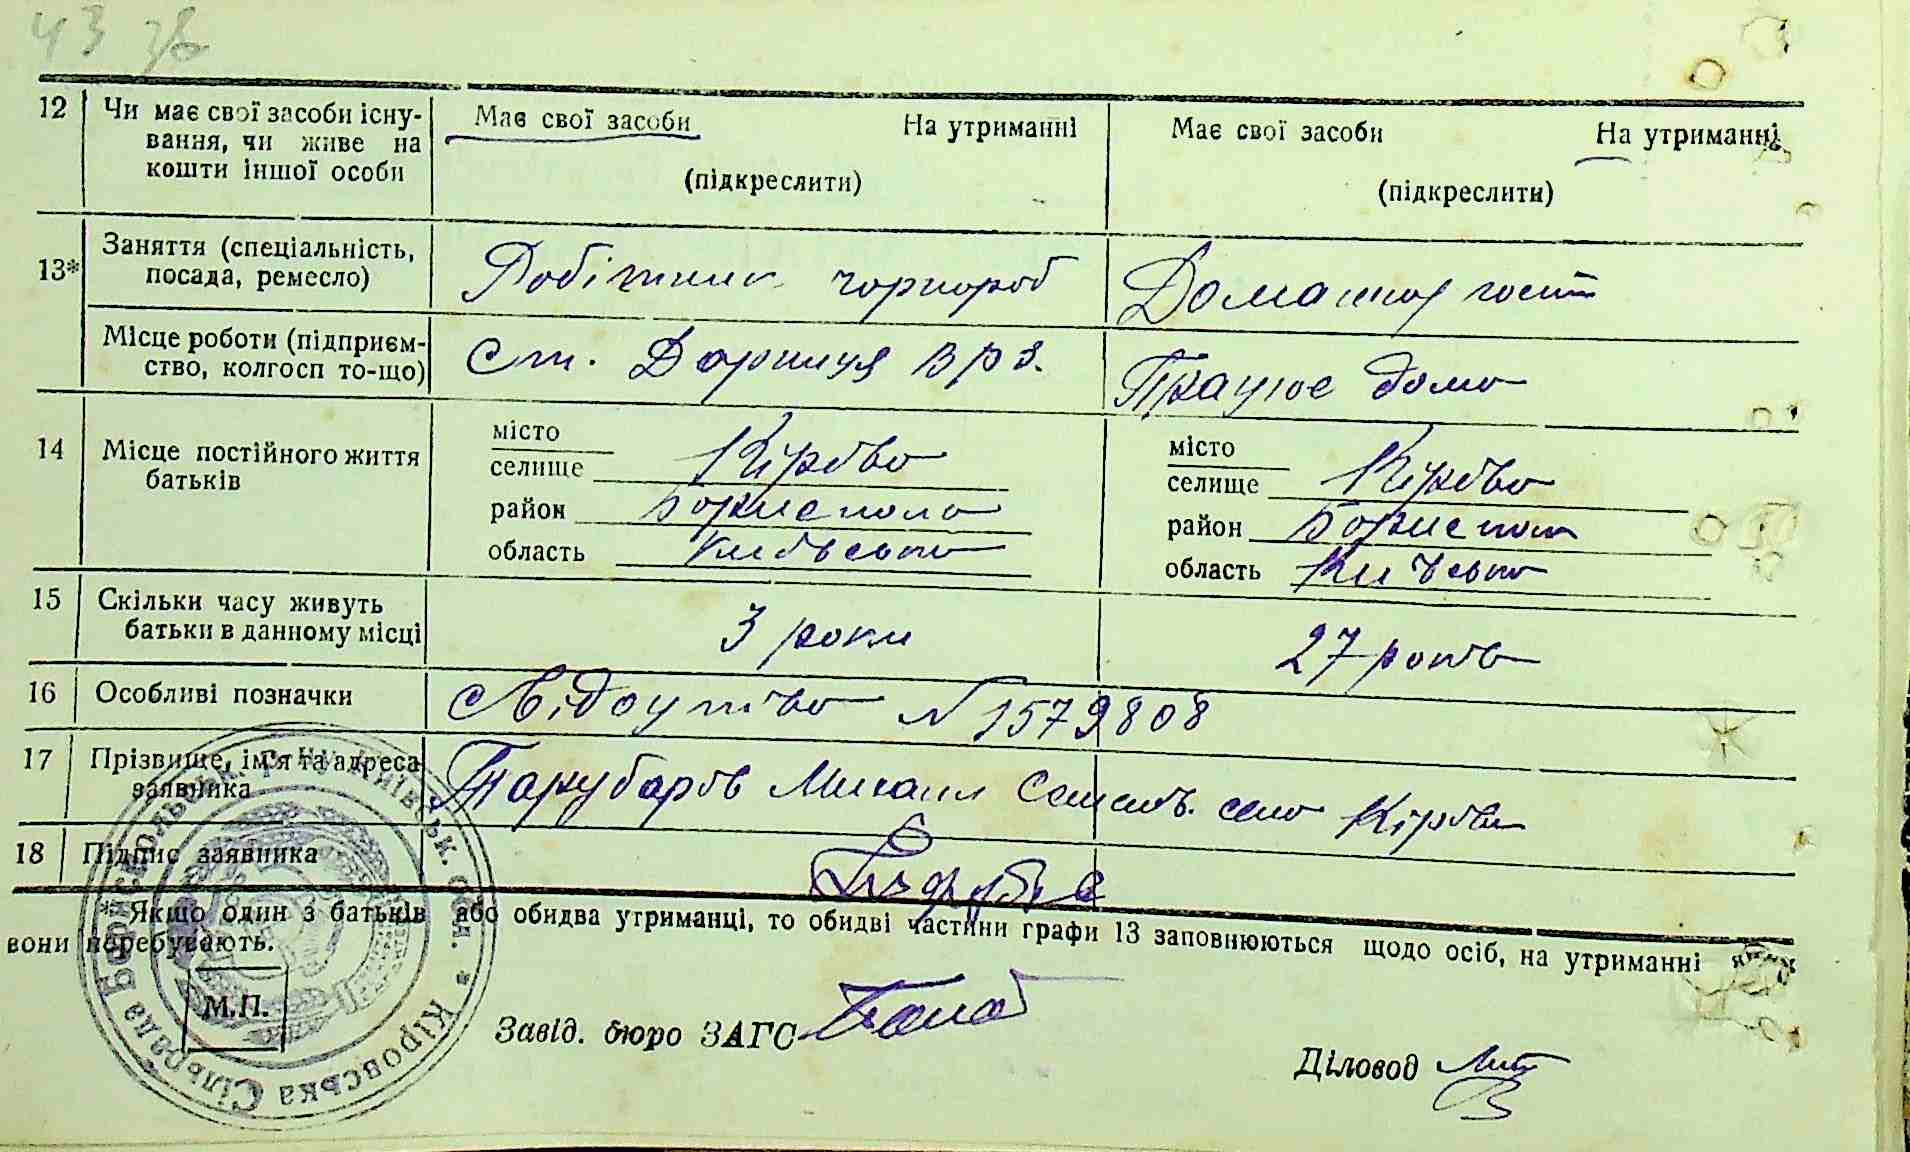 43 38
12 Чи має свої засоби існу- Має свої засоби На утриманні Має свої засоби На утриманні
вання, чи живе на
кошти іншої особи (підкреслити) (підкреслити)
13* Заняття (спеціальність, Робітник чорнороб Домашня госп
посада, ремесло)
Місце роботи (підприєм- Ст. Дарниця ВРЗ. Працює дома
ство, колгосп то-що)
14 Місце постійного життя місто місто
батьків селище Кірово селище Кірово
район Бориспол район Бориспол
область Київська область Київська
15 Скільки часу живуть 3 роки 27 років
батьки в данному місці
16 Особливі позначки Свідоцтво N 1579808
17 Прізвище, ім'я та адреса Тарубаров Михаил село Кірово
заявника
18 Підпис заявника
* Якщо один з батьків або обидва утриманці, то обидві частини графи 13 заповнюються щодо осіб, на утриманні яких
вони перебувають.
М.П.
Завід. бюро ЗАГС
Діловод
Кіровська Сільрада Бориспольськ. р-ну Київськ. обл.